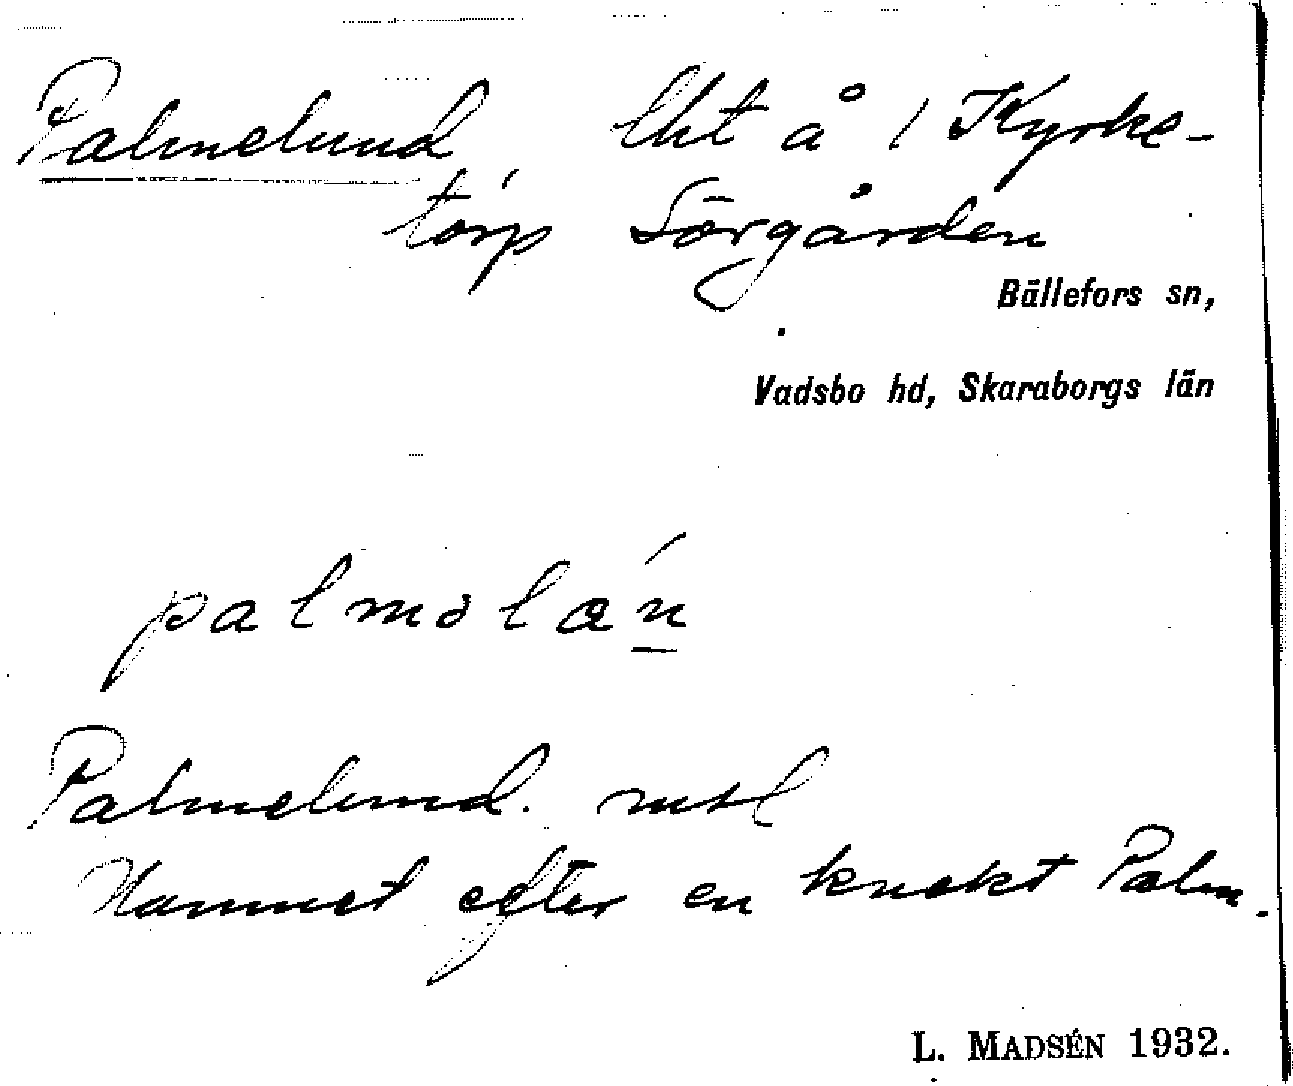 Palmelund lht å 1 Kyrke-
torp Sörgården
Bällefors sn,
Vadsbo hd, Skaraborgs län
palməlán
Palmelund. mtl
Namnet efter en knekt Palm.
L. MADSÉN 1932.